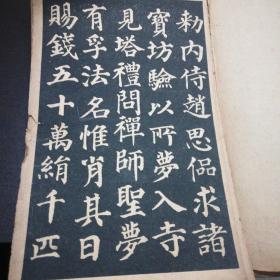 勑内侍趙思偘求諸
寳坊驗以所夢入寺
見塔禮問禪師聖夢
有孚法名惟肖其日
賜錢五十萬絹千匹